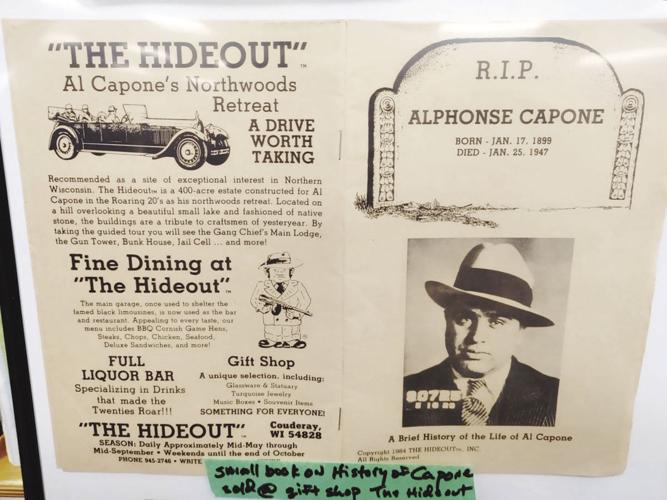 "THE HIDEOUT"™
Al Capone's Northwoods
Retreat
A DRIVE
WORTH
TAKING
Recommended as a site of exceptional interest in Northern
Wisconsin. The Hideout™ is a 400-acre estate constructed for Al
Capone in the Roaring 20's as his northwoods retreat. Located on
a hill overlooking a beautiful small lake and fashioned of native
stone, the buildings are a tribute to craftsmen of yesteryear. By
taking the guided tour you will see the Gang Chief's Main Lodge,
the Gun Tower, Bunk House, Jail Cell ... and more!
Fine Dining at
"The Hideout"™
The main garage, once used to shelter the
famed black limousines, is now used as the bar
and restaurant. Appealing to every taste, our
menu includes BBQ Cornish Game Hens,
Steaks, Chops, Chicken, Seafood,
Deluxe Sandwiches, and more!
FULL
LIQUOR BAR
Specializing in Drinks
that made the
Twenties Roar!!!
Gift Shop
A unique selection, including:
Glassware & Statuary
Turquoise Jewelry
Music Boxes • Souvenir Items
SOMETHING FOR EVERYONE!
"THE HIDEOUT"™
Couderay,
WI 54828
SEASON: Daily Approximately Mid-May through
Mid-September • Weekends until the end of October
PHONE 945-2746 • WRITE
R.I.P.
ALPHONSE CAPONE
BORN - JAN. 17, 1899
DIED - JAN. 25, 1947
A Brief History of the Life of Al Capone
Copyright 1984 THE HIDEOUT™, INC.
All Rights Reserved
small book on History of Capone
sold @ gift shop The Hideout